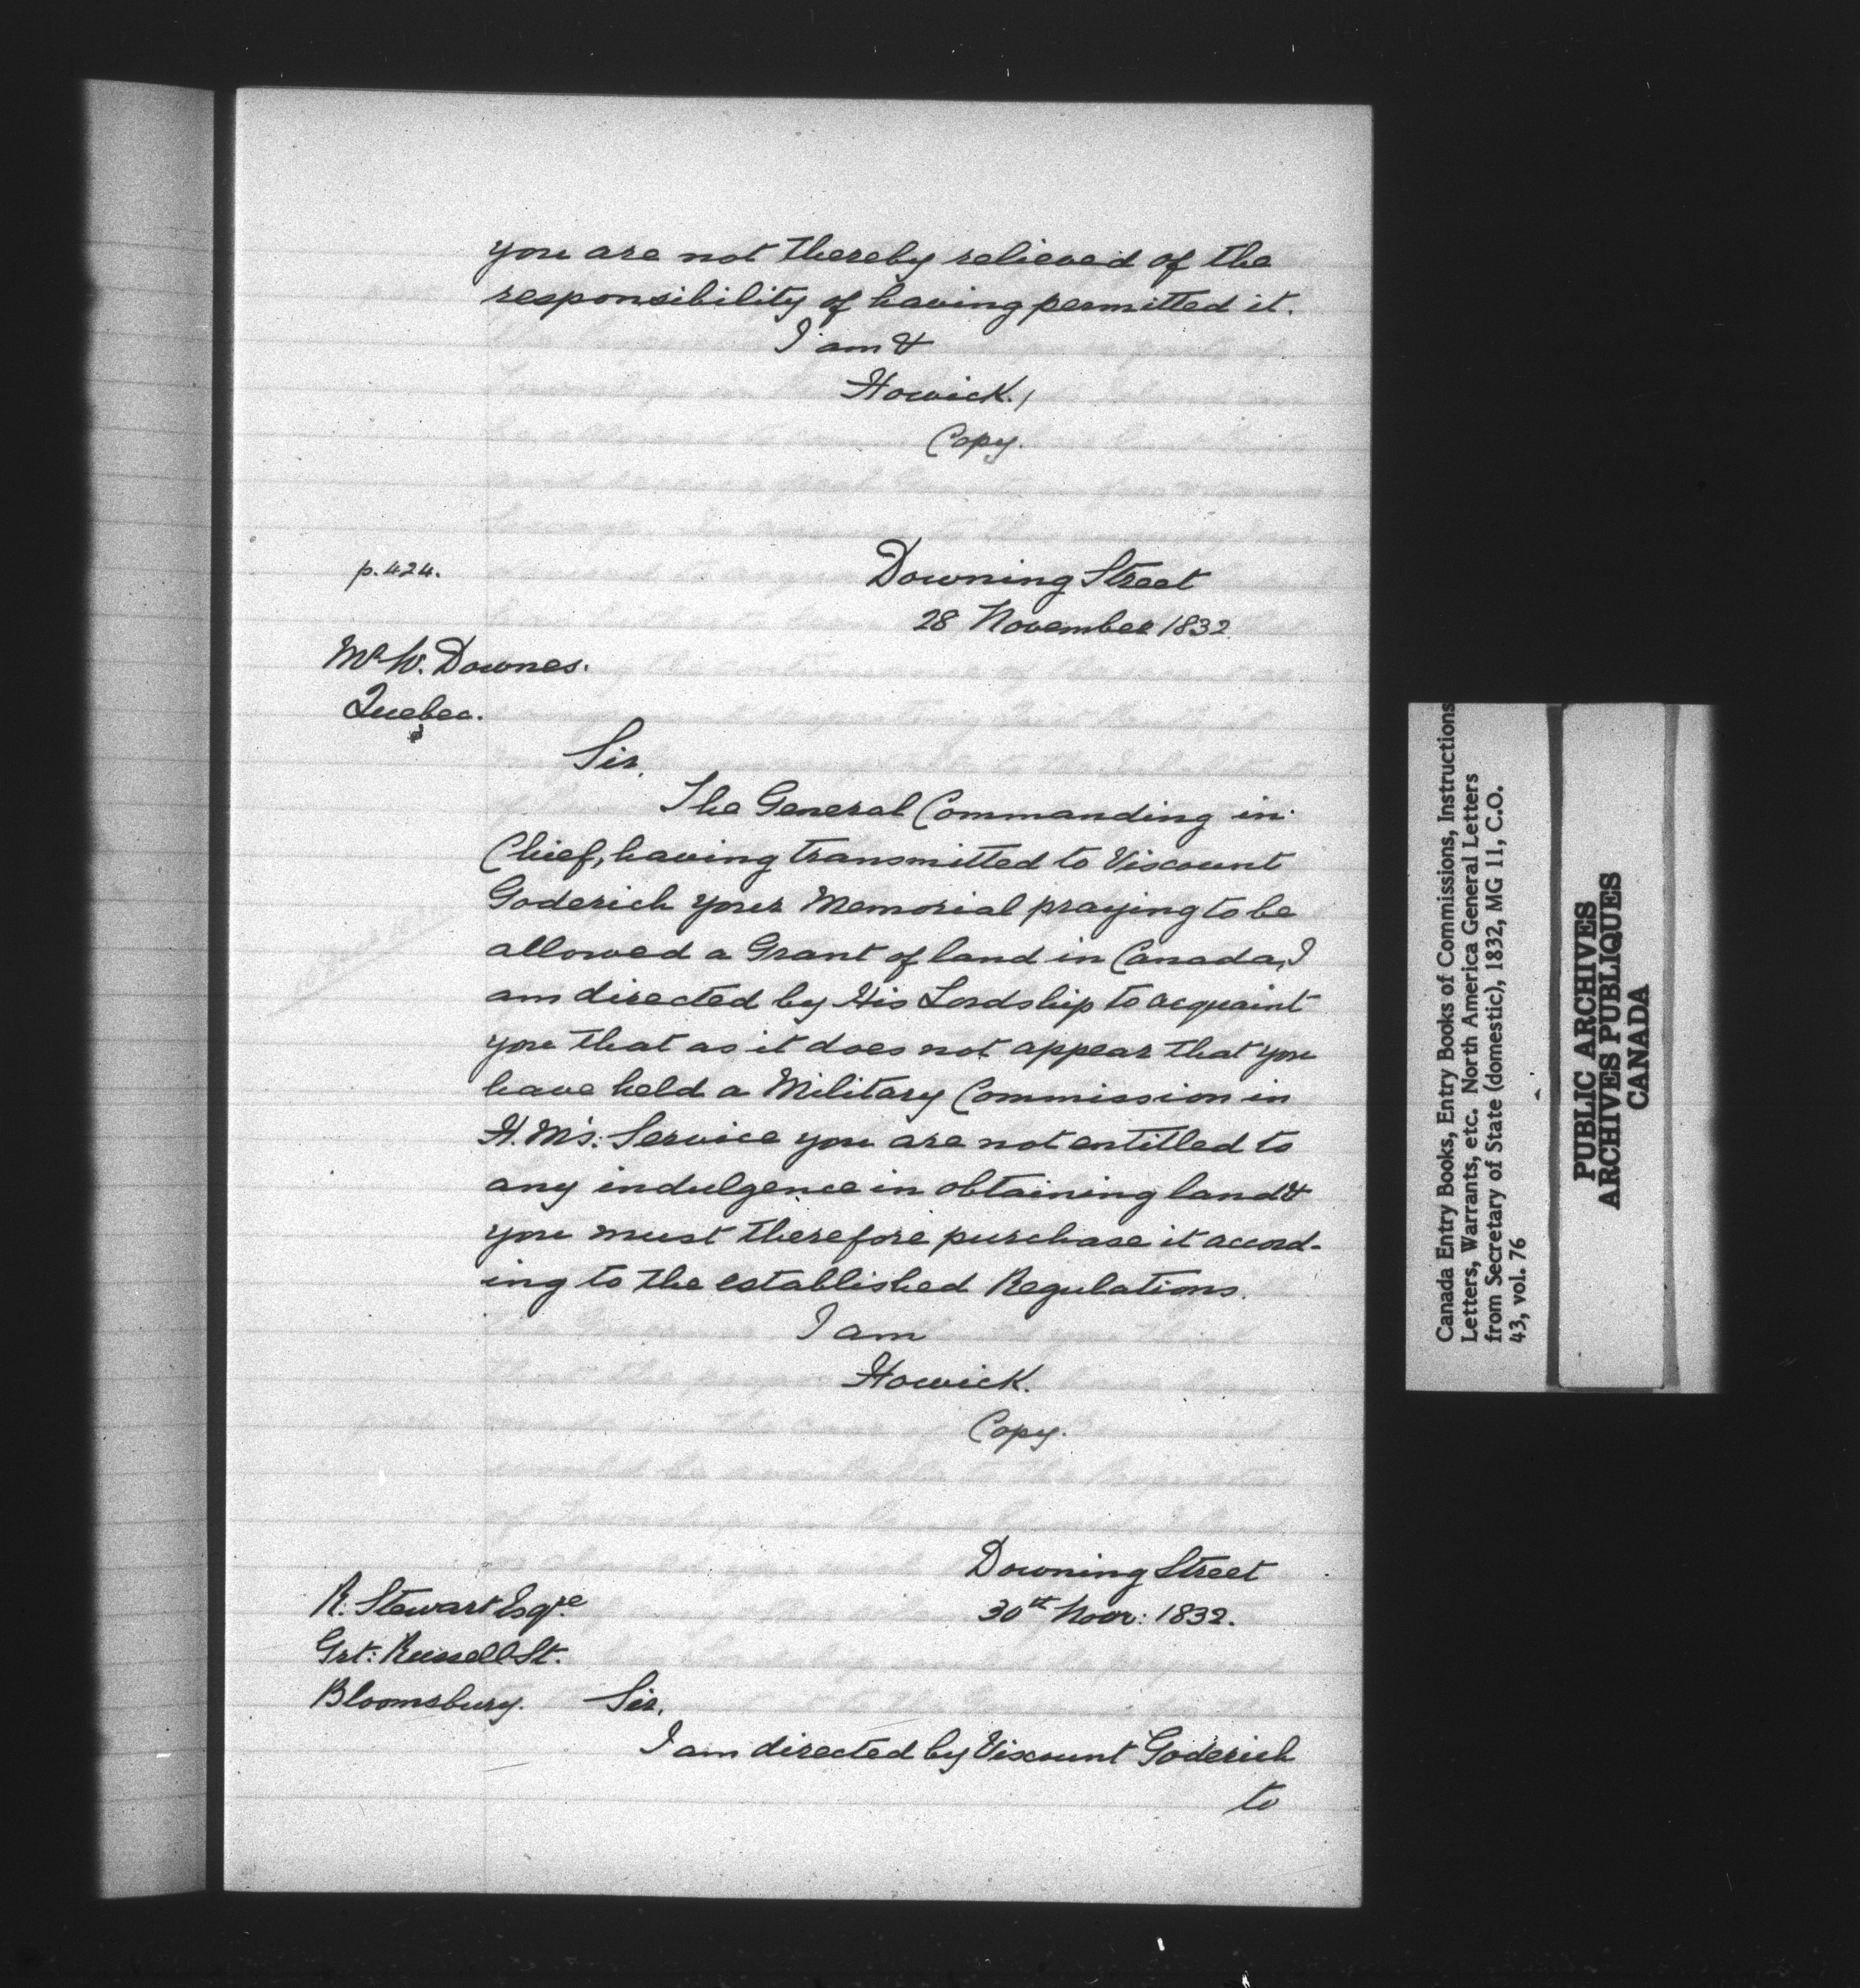 you are not thereby relieved of the
responsibility of having permitted it.
I am &
Howick./
Copy.
p.424.
Downing Street
28 November 1832
Mr W. Downes.
Quebec.
Sir,
The General Commanding in
Chief, having transmitted to Viscount
Goderich your Memorial praying to be
allowed a Grant of land in Canada, I
am directed by His Lordship to acquaint
you that as it does not appear that you
have held a Military Commission in
H.M's: Service you are not entitled to
any indulgence in obtaining land &
you must therefore purchase it accord-
ing to the established Regulations.
I am
Howick.
Copy.
Downing Street
30th Novr: 1832.
R. Stewart Esqre
Grt: Russell St.
Bloomsbury.
Sir,
I am directed by Viscount Goderich
to
Canada Entry Books, Entry Books of Commissions, Instructions
Letters, Warrants, etc. North America General Letters
from Secretary of State (domestic), 1832, MG 11, C.O.
43, vol. 76
PUBLIC ARCHIVES
ARCHIVES PUBLIQUES
CANADA